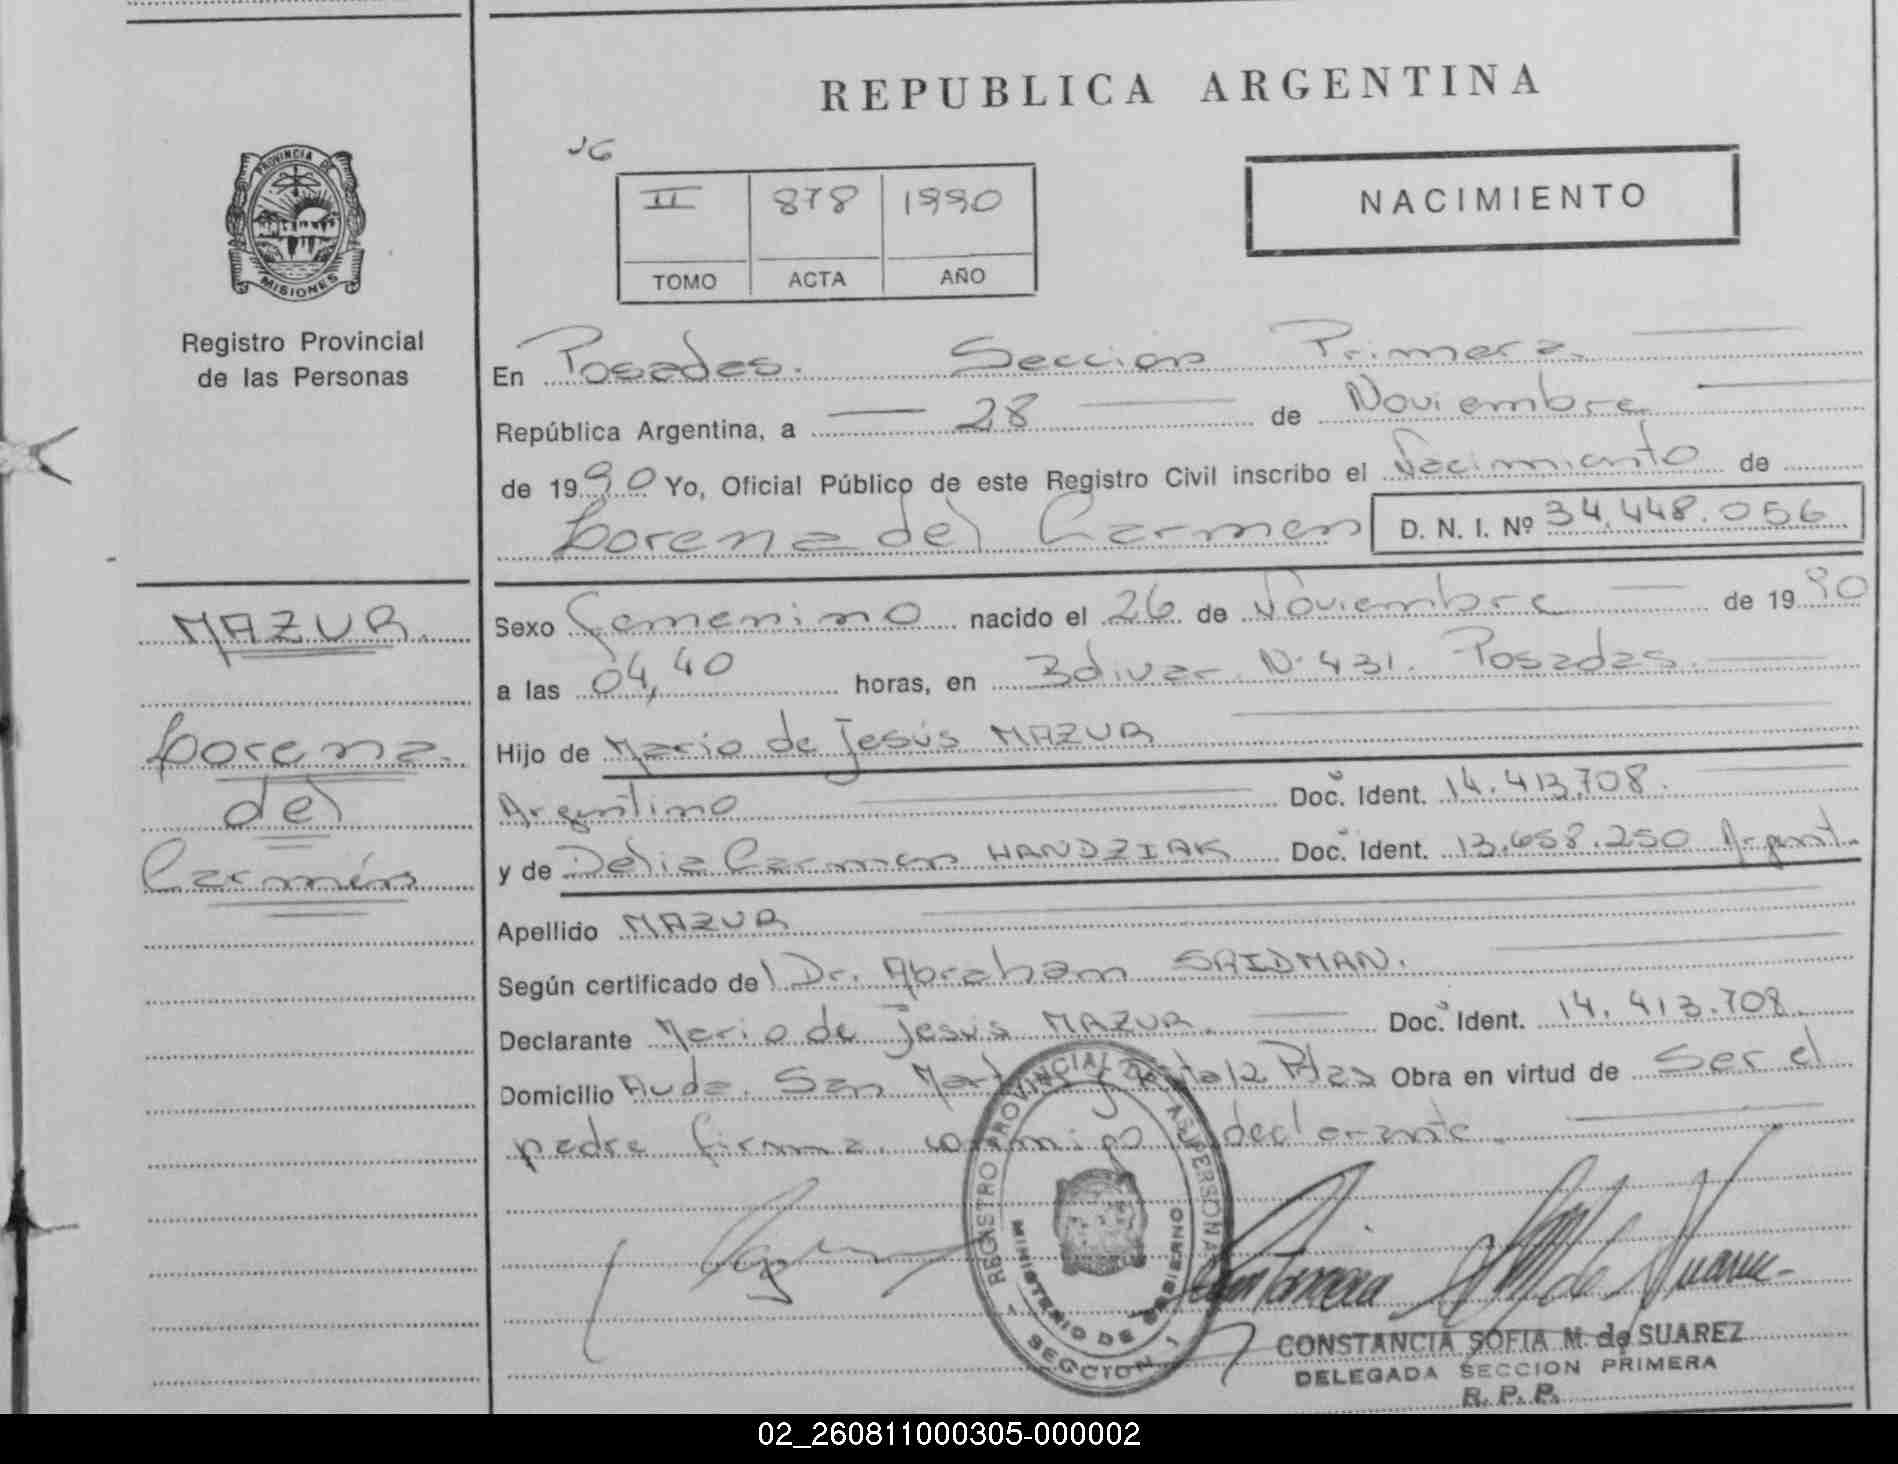 REPUBLICA ARGENTINA
PROVINCIA DE
MISIONES
Registro Provincial
de las Personas
II 878 1990
TOMO ACTA AÑO
NACIMIENTO
En Posadas. Seccion Primera.
República Argentina, a 28 de Noviembre
de 1990 Yo, Oficial Público de este Registro Civil inscribo el Nacimiento de
Lorena del Carmen D. N. I. Nº 34.448.056
MAZUR.
Lorena.
del
Carmén
Sexo femenino nacido el 26 de Noviembre de 1990
a las 04,40 horas, en Bolivar Nº 431. Posadas.
Hijo de Mario de Jesús MAZUR
Argentino Doc. Ident. 14.413.708.
y de Delia Carmen HANDZIAK Doc. Ident. 13.658.250 Argent.
Apellido MAZUR
Según certificado del Dr. Abraham SAIDMAN.
Declarante Mario de Jesús MAZUR. Doc. Ident. 14.413.708.
Domicilio Avda. San Obra en virtud de Ser el
padre firma conmigo el declarante.
REGISTRO PROVINCIAL DE LAS PERSONAS
MINISTERIO DE GOBIERNO
SECCION 1
CONSTANCIA SOFIA M. de SUAREZ
DELEGADA SECCION PRIMERA
R. P. P.
02_260811000305-000002